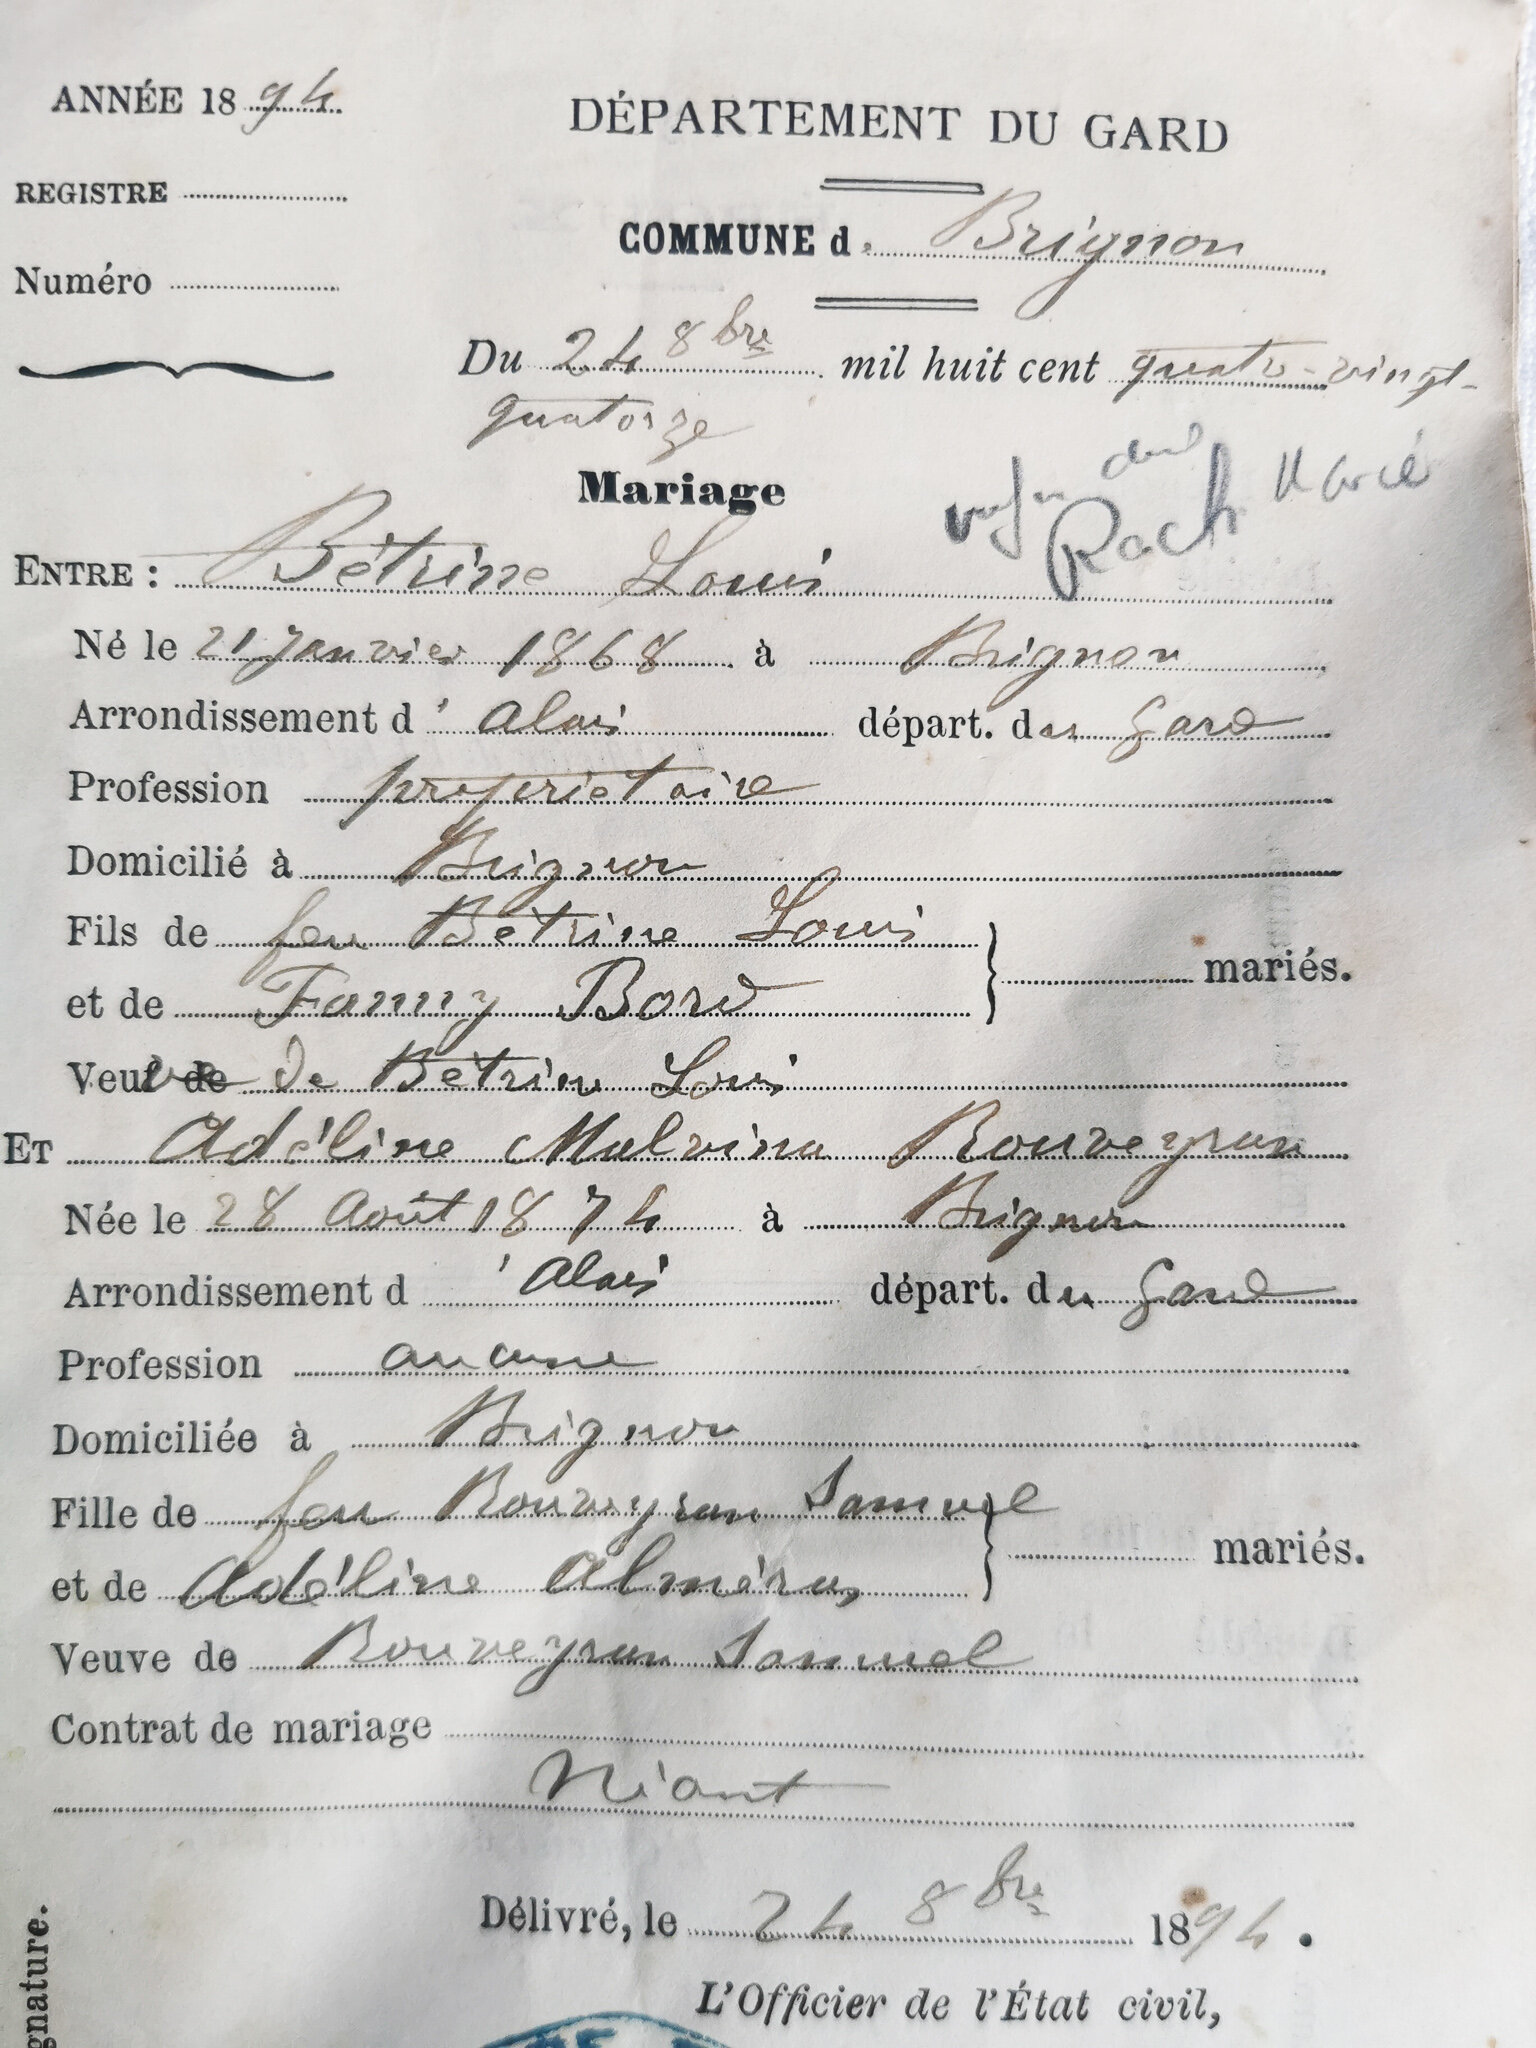 ANNÉE 1894
DÉPARTEMENT DU GARD
REGISTRE
COMMUNE de Brignon
Numéro
Du 24 8bre mil huit cent quatre-vingt-
quatorze
Mariage
Rach Marié
ENTRE : Bétrine Louis
Né le 21 Janvier 1868 à Brignon
Arrondissement d' Alais départ. du Gard
Profession propriétaire
Domicilié à Brignon
Fils de feu Bétrine Louis
et de Fanny Bord
mariés.
Veuve de de Bétrine Louis
ET Adéline Malvina Rouveyran
Née le 28 Août 1874 à Brignon
Arrondissement d 'Alais départ. du Gard
Profession aucune
Domiciliée à Brignon
Fille de feu Rouveyran Samuel
et de Adéline Alméras
mariés.
Veuve de Rouveyran Samuel
Contrat de mariage
Néant
Délivré, le 24 8bre 1894.
L'Officier de l'État civil,
gnature.